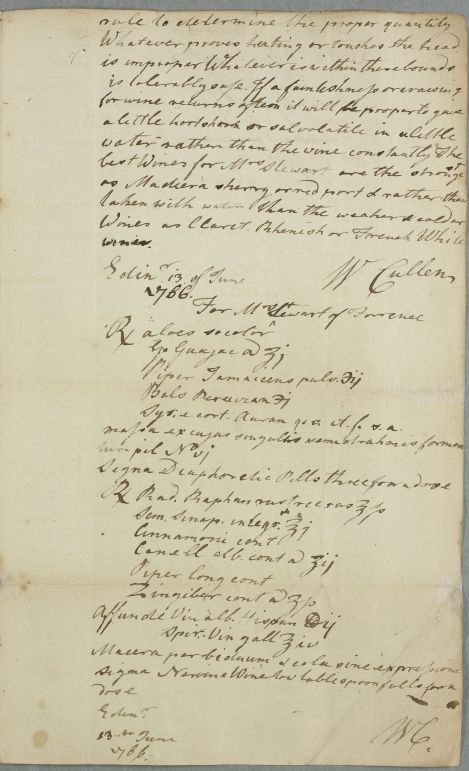 rule to determine the proper quantity
Whatever proves heating or touches the head
is improper Whatever is within these bounds
is tolerably safe. If a faintishness or craving
for wine returns often it will be proper to give
a little hartshorn or sal volatile in a little
water rather than the wine constantly The
best Wines for Mrs Stewart are the strongest
as Madeira sherry or red port & rather them
taken with water than the weaker & colder
Wines as Claret. Rhenish or French White
wines.
Edinr. 13 of June
1766.
W Cullen
For Mrs Stewart of Torrence
℞ aloes socotor
Gp Guajac a ʒj
Piper Jamaicens pulv. ℈ij
Bals Peruvian ʒj
Syr. e cort. Auran q. s. ut. f. s. a.
massa ex cujus singulis semidrachmis formen
tur pil No vj
Signa Diaphoretic Pills three for a dose
℞ Rad. Raphan rust rec ras ℥ſs
Sem. Sinap. integr. ℥j
Cinnamoni cont
Canell alb. cont a ʒij
Piper long cont
Zingiber cont a ʒſs
affunde Vin alb. Hispan ij
Spir. Vin gall ℥iv
Macera per biduum & cola sine expressione
signa Nervine Wine two tablespoonfulls for a
dose
Edinr.
13th June
1766.
WC.